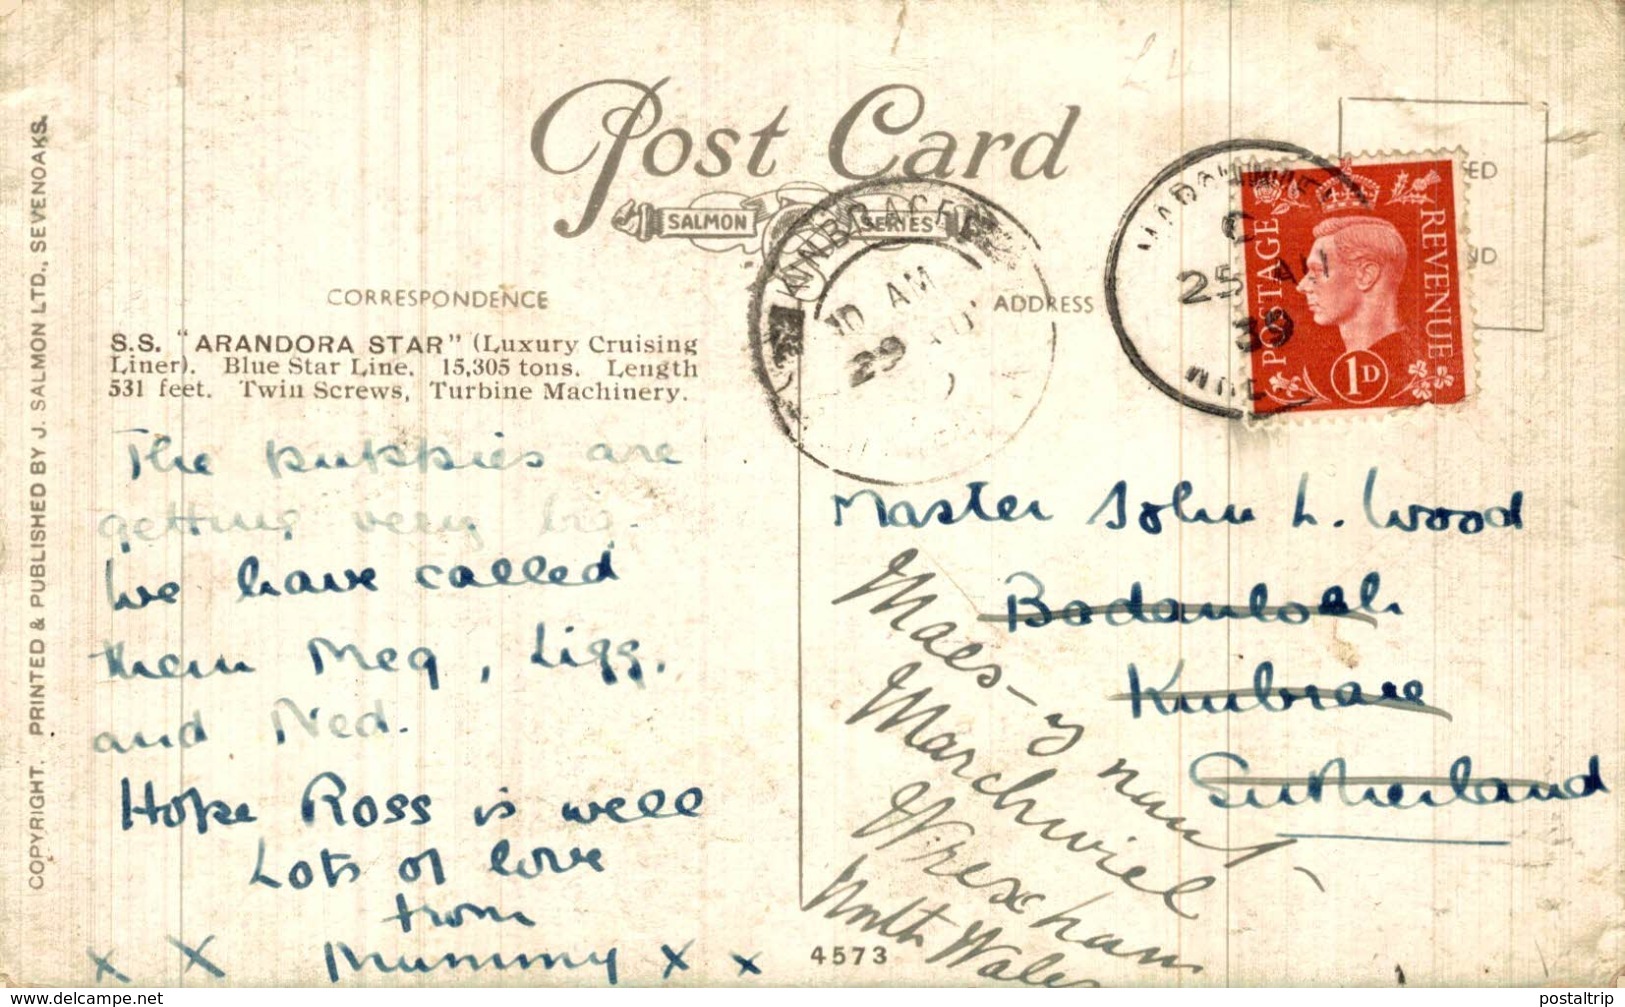 Post Card
SALMON SERIES
CORRESPONDENCE
ADDRESS
S.S. "ARANDORA STAR" (Luxury Cruising
Liner). Blue Star Line. 15,305 tons. Length
531 feet. Twin Screws, Turbine Machinery.
The puppies are
getting very big.
We have called
them Meg, Ligg,
and Ned.
Hope Ross is well
Lots of love
from
x x Mummy x x
COPYRIGHT. PRINTED & PUBLISHED BY J. SALMON LTD., SEVENOAKS.
KINBRACE
10 AM
29
C
25 AU
39
POSTAGE
REVENUE
1D
Master John L. Wood
Badanloch
Kinbrace
Sutherland
Maes-y nant
Marchwiel
Wrexham
North Wales
4573
delcampe.net
postaltrip